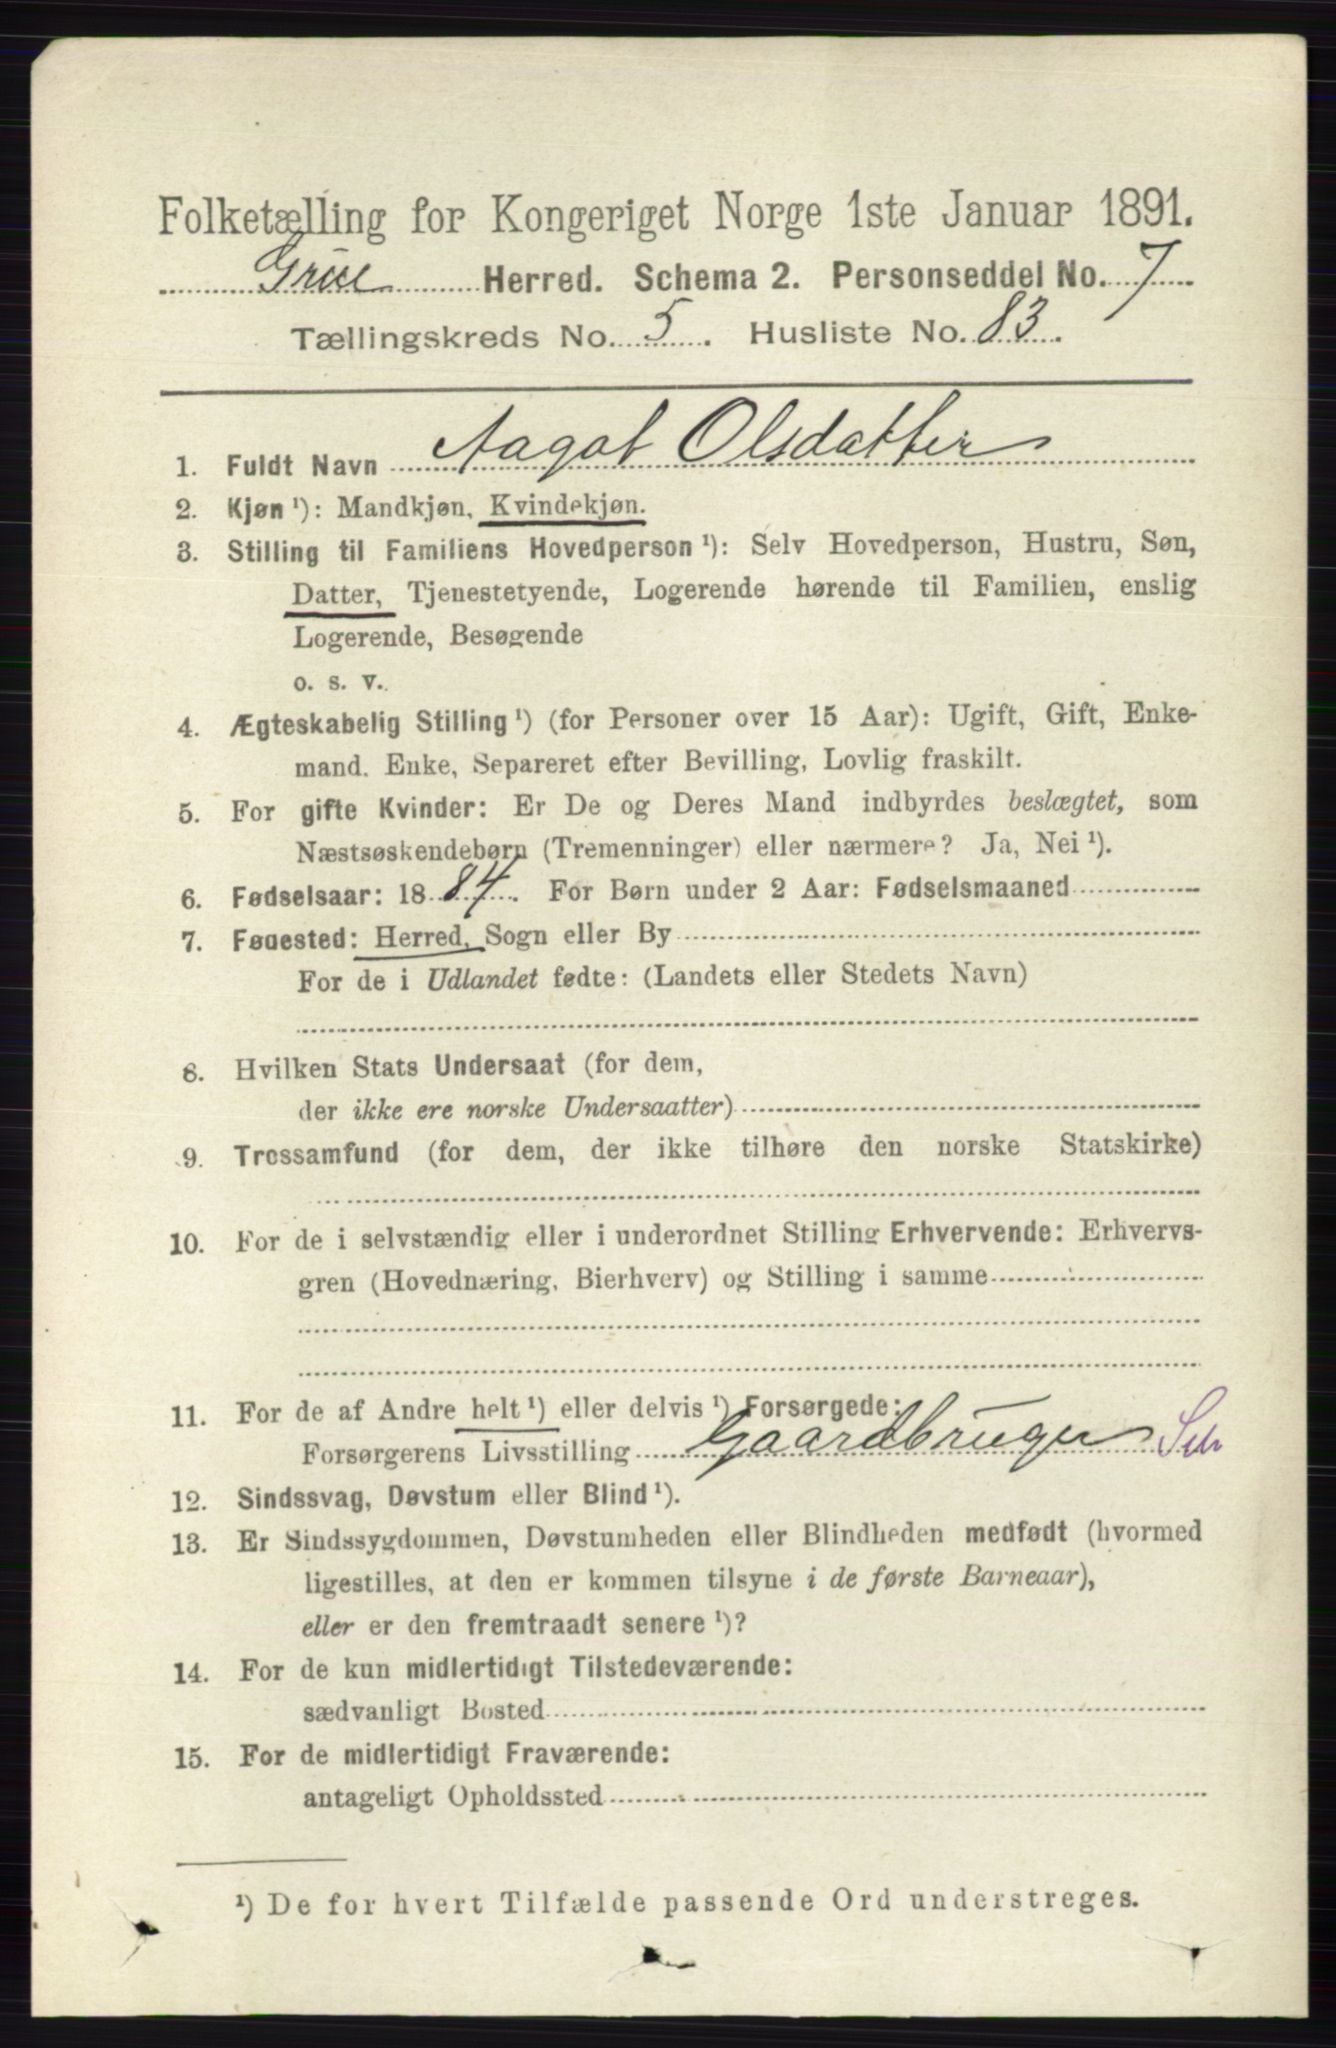 Folketælling for Kongeriget Norge 1ste Januar 1891.
Grue Herred. Schema 2. Personseddel No. 7
Tællingskreds No. 5. Husliste No. 83.
1. Fuldt Navn Aagot Olsdatter
2. Kjøn ¹): Mandkjøn, Kvindekjøn.
3. Stilling til Familiens Hovedperson ¹): Selv Hovedperson, Hustru, Søn,
Datter, Tjenestetyende, Logerende hørende til Familien, enslig
Logerende, Besøgende
o. s. v.
4. Ægteskabelig Stilling ¹) (for Personer over 15 Aar): Ugift, Gift, Enke-
mand. Enke, Separeret efter Bevilling, Lovlig fraskilt.
5. For gifte Kvinder: Er De og Deres Mand indbyrdes beslægtet, som
Næstsøskendebørn (Tremenninger) eller nærmere? Ja, Nei ¹).
6. Fødselsaar: 1884. For Børn under 2 Aar: Fødselsmaaned
7. Fødested: Herred, Sogn eller By
For de i Udlandet fødte: (Landets eller Stedets Navn)
8. Hvilken Stats Undersaat (for dem,
der ikke ere norske Undersaatter)
9. Trossamfund (for dem, der ikke tilhøre den norske Statskirke)
10. For de i selvstændig eller i underordnet Stilling Erhvervende: Erhvervs-
gren (Hovednæring, Bierhverv) og Stilling i samme
11. For de af Andre helt ¹) eller delvis ¹) Forsørgede:
Forsørgerens Livsstilling Gaardbruger
12. Sindssvag, Døvstum eller Blind ¹).
13. Er Sindssygdommen, Døvstumheden eller Blindheden medfødt (hvormed
ligestilles, at den er kommen tilsyne i de første Barneaar),
eller er den fremtraadt senere ¹)?
14. For de kun midlertidigt Tilstedeværende:
sædvanligt Bosted
15. For de midlertidigt Fraværende:
antageligt Opholdssted
¹) De for hvert Tilfælde passende Ord understreges.